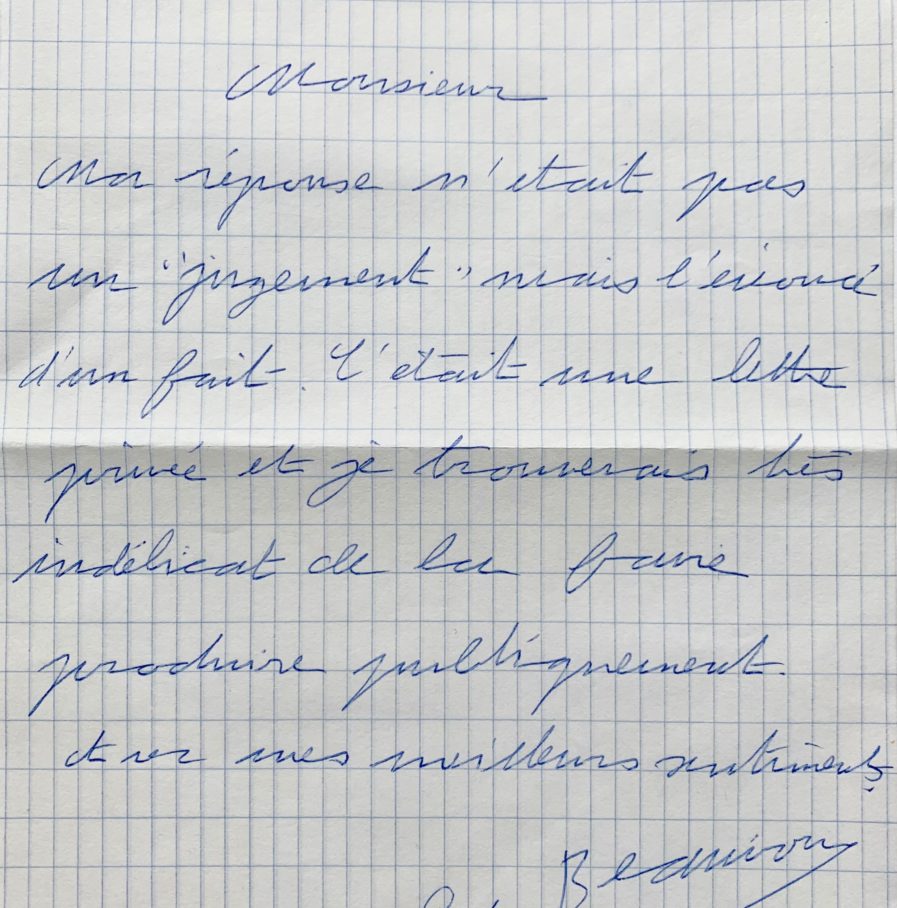 Monsieur
Ma réponse n'etait pas
un "jugement" mais l'énoncé
d'un fait. C'était une lettre
privée et je trouverais très
indélicat de la faire
produire publiquement.
avec mes meilleurs sentiments